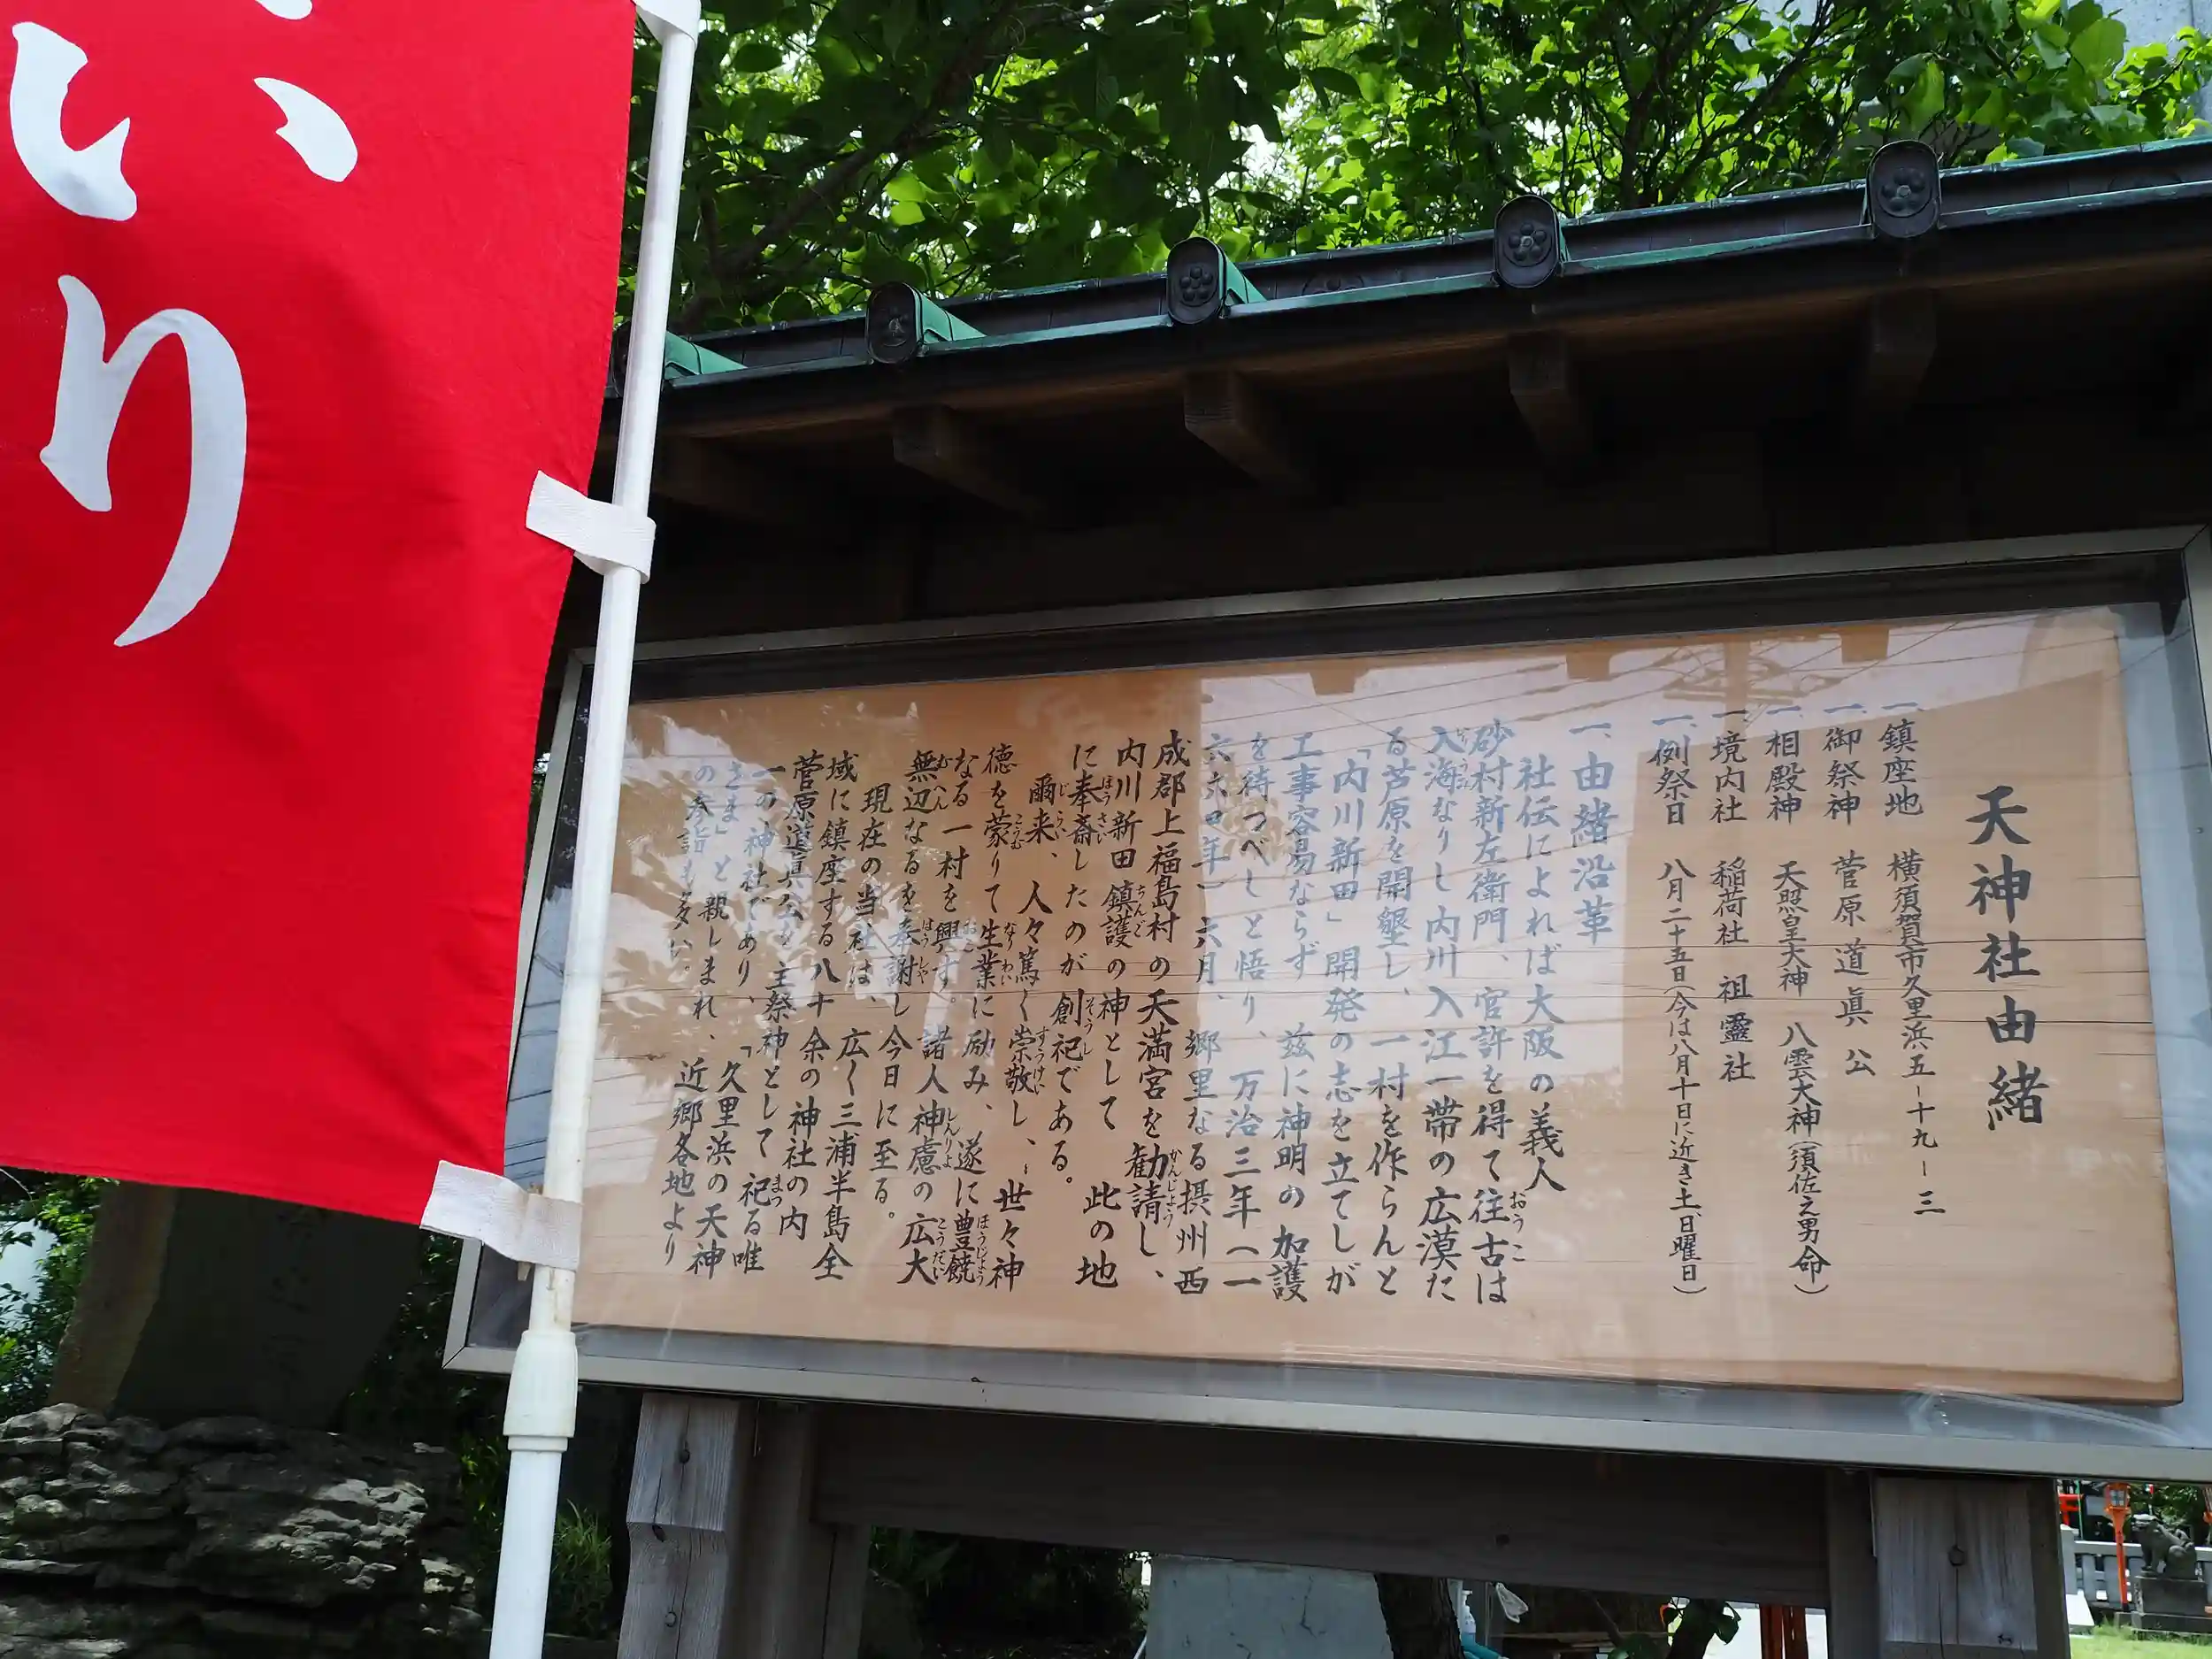 天神社由緒
一、鎮座地 横須賀市久里浜五ー十九ー三
一、御祭神 菅原道眞公
一、相殿神 天照皇大神 八雲大神(須佐之男命)
一、境内社 稲荷社 祖霊社
一、例祭日 八月二十五日(今は八月十日に近き土、日曜日)
一、由緒沿革
社伝によれば大阪の義人
砂村新左衛門、官許を得て往古は
入海なりし内川入江一帯の広漠た
る芦原を開墾し、一村を作らんと
「内川新田」開発の志を立てしが
工事容易ならず、茲に神明の加護
を待つべしと悟り、万治三年(一
六六〇年)六月、郷里なる摂州西
成郡上福島村の天満宮を勧請し、
内川新田鎮護の神として此の地
に奉斎したのが創祀である。
爾来、人々篤く崇敬し、世々神
徳を蒙りて生業に励み、遂に豊饒
なる一村を興す。諸人神慮の広大
無辺なるを奉謝し今日に至る。
現在の当社は、広く三浦半島全
域に鎮座する八十余の神社の内
菅原道眞公を主祭神として祀る唯
一の神社であり、「久里浜の天神
さま」と親しまれ、近郷各地より
の参詣も多い。
いり